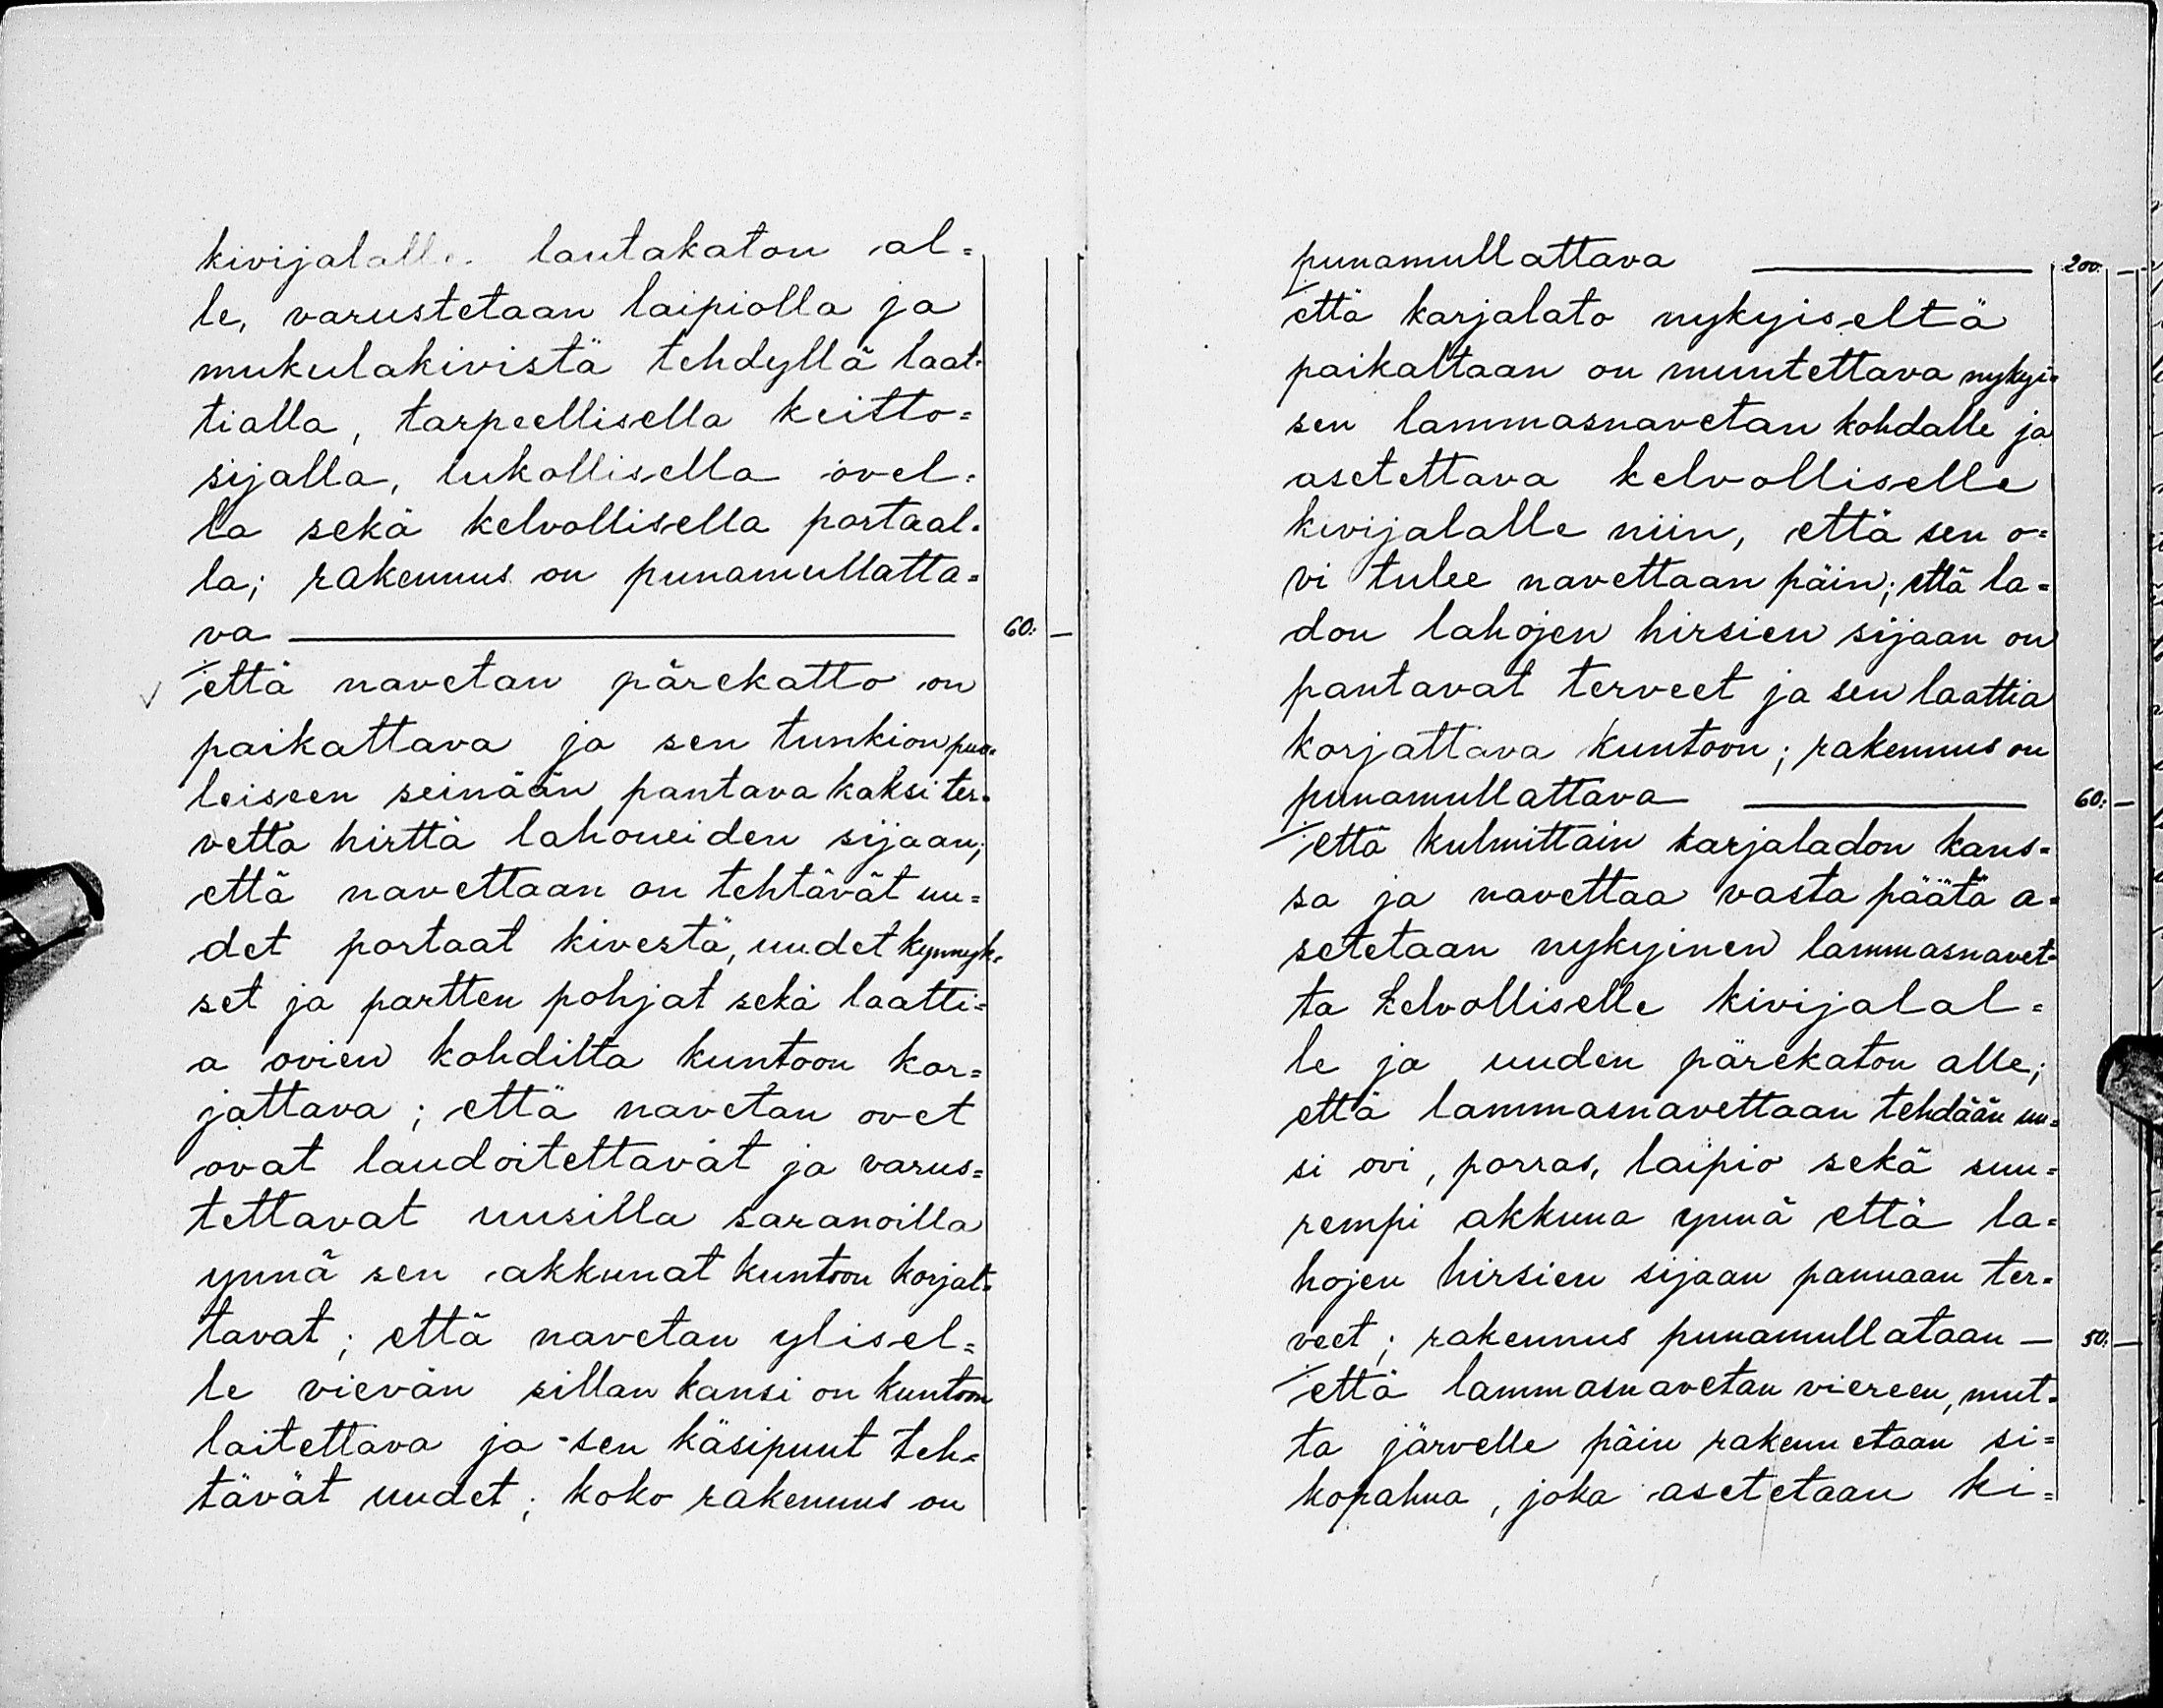 kivijalalle lautakaton al=
le, varustetaan laipiolla ja
mukulakivistä tehdyllä laat=
tialla, tarpeellisella keitto=
sijalla, lukollisella ovel=
la sekä kelvollisella portaal=
la; rakennus on punamullatta=
va — 60: —
että navetan pärekatto on
paikattava ja sen tunkion puo=
leiseen seinään pantava kaksi ter=
vettä hirttä lahoneiden sijaan;
että navettaan on tehtävät uu=
det portaat kivestä, uudet kynnyk=
set ja partten pohjat sekä laatti=
a ovien kohdilta kuntoon kor=
jattava; että navetan ovet
ovat laudoitettavat ja varus=
tettavat uusilla saranoilla
ynnä sen akkunat kuntoon korjat=
tavat; että navetan ylisel=
le vievän sillan kansi on kuntoon
laitettava ja sen käsipuut teh=
tävät uudet; koko rakennus on
punamullattava — 200: —
että karjalato nykyiseltä
paikaltaan on muutettava nykyi=
sen lammasnavetan kohdalle ja
asetettava kelvolliselle
kivijalalle niin, että sen o=
vi tulee navettaan päin; että la=
don lahojen hirsien sijaan on
pantavat terveet ja sen laattia
korjattava kuntoon; rakennus on
punamullattava — 60: —
että kulmittain karjaladon kans=
sa ja navettaa vasta päätä a=
setetaan nykyinen lammasnavet=
ta kelvolliselle kivijalal=
le ja uuden pärekaton alle;
että lammasnavettaan tehdään uu=
si ovi, porras, laipio sekä suu=
rempi akkuna ynnä että la=
hojen hirsien sijaan pannaan ter=
veet; rakennus punamullataan — 50: —
että lammasnavetan viereen, mut=
ta järvelle päin rakennetaan si=
kopahna, joka asetetaan ki=